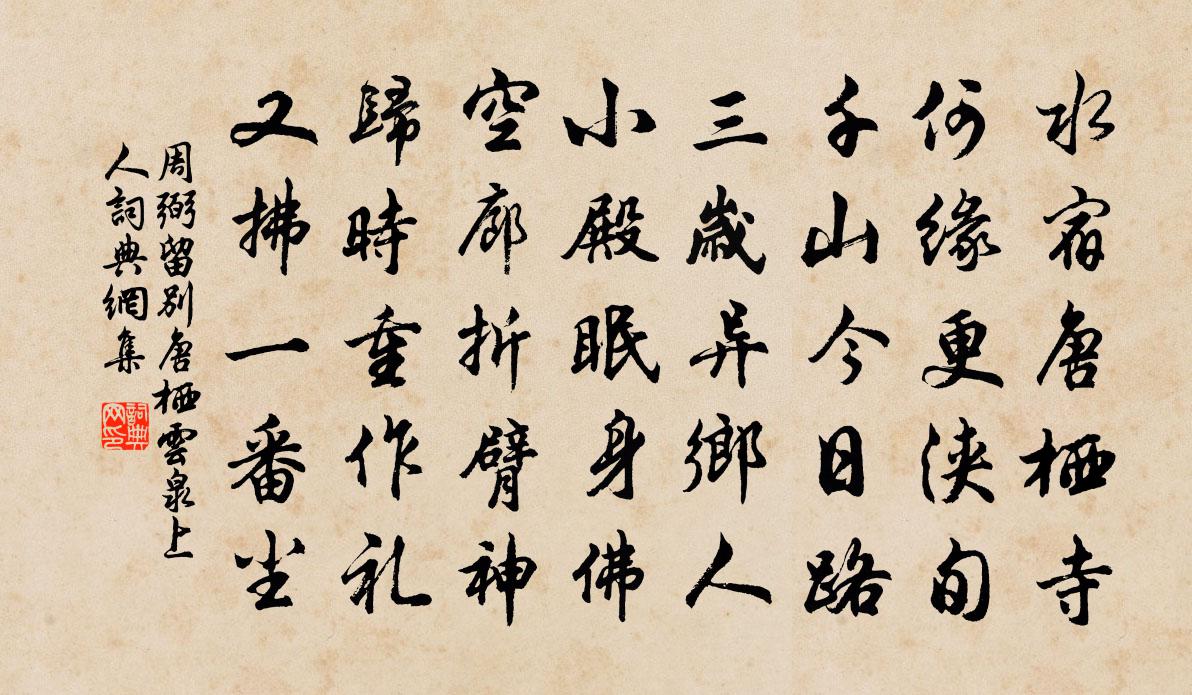 水宿唐栖寺
何緣更浹旬
千山今日路
三歲异鄉人
小殿眠身佛
空廊折臂神
歸時重作礼
又拂一番尘
周弼留別唐栖雲泉上
人詞典網集
詞典
网印